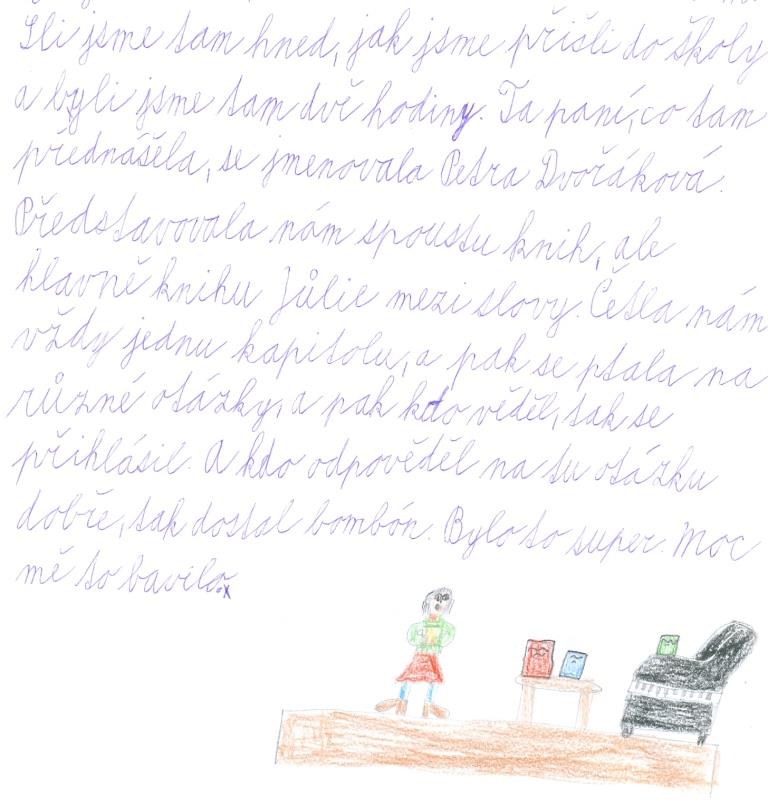 Šli jsme tam hned, jak jsme přišli do školy
a byli jsme tam dvě hodiny. Ta paní, co tam
přednášela, se jmenovala Petra Dvořáková.
Představovala nám spoustu knih, ale
hlavně knihu Júlie mezi slovy. Četla nám
vždy jednu kapitolu, a pak se ptala na
různé otázky, a pak kdo věděl, tak se
přihlásil. A kdo odpověděl na tu otázku
dobře, tak dostal bombón. Bylo to super. Moc
mě to bavilo.